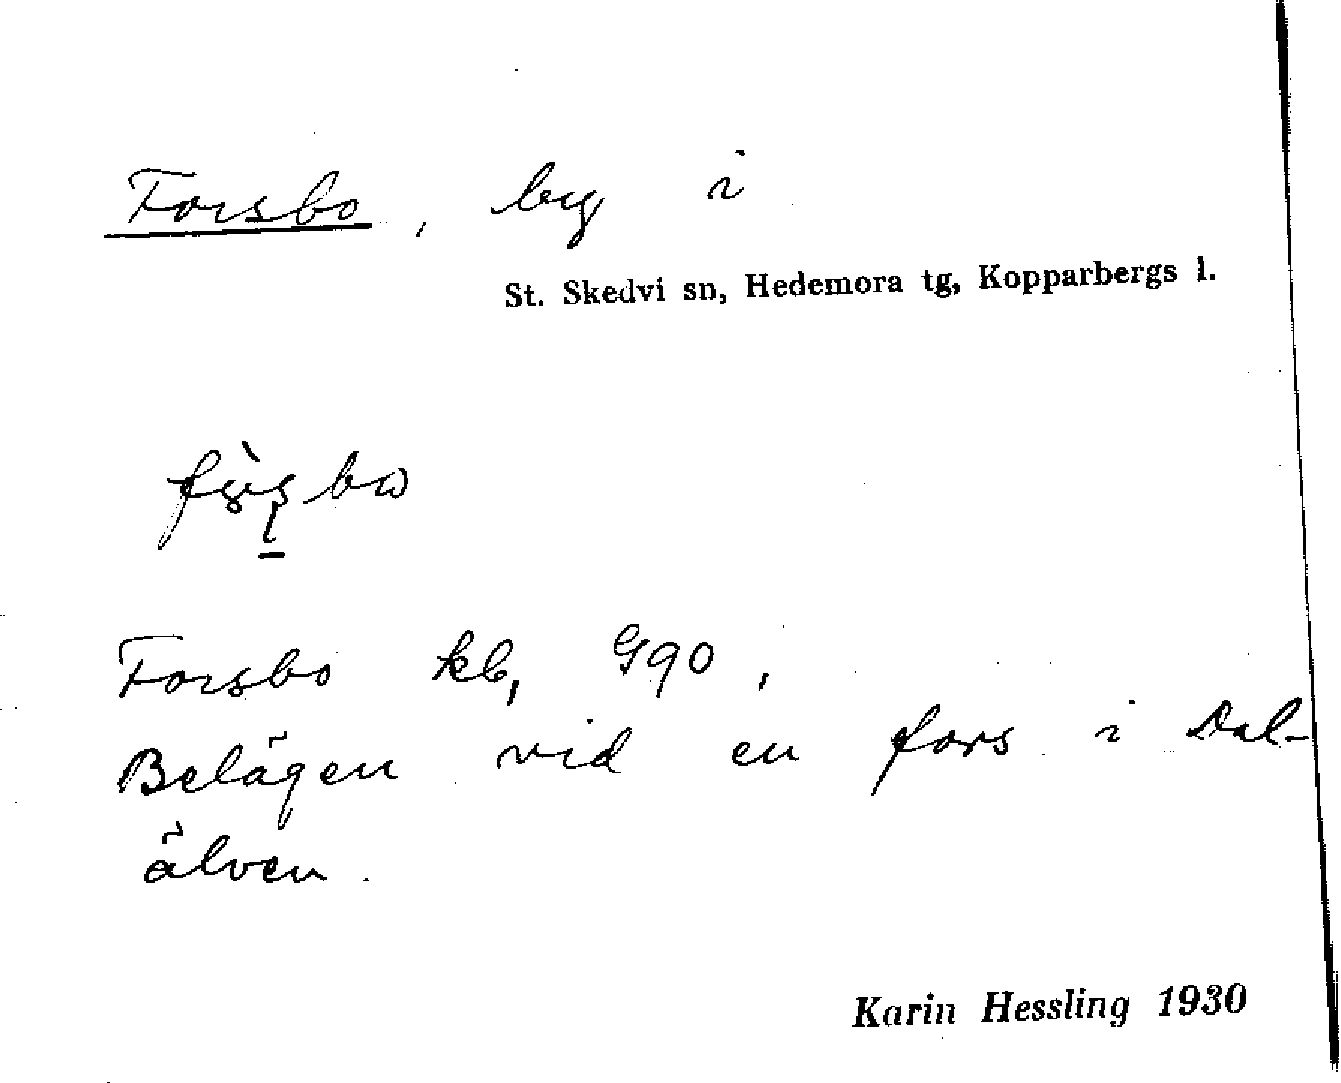 Forsbo, by i
St. Skedvi sn, Hedemora tg, Kopparbergs l.
Forsbo kb, G90,
Belägen vid en fors i Dal-
älven.
Karin Hessling 1930